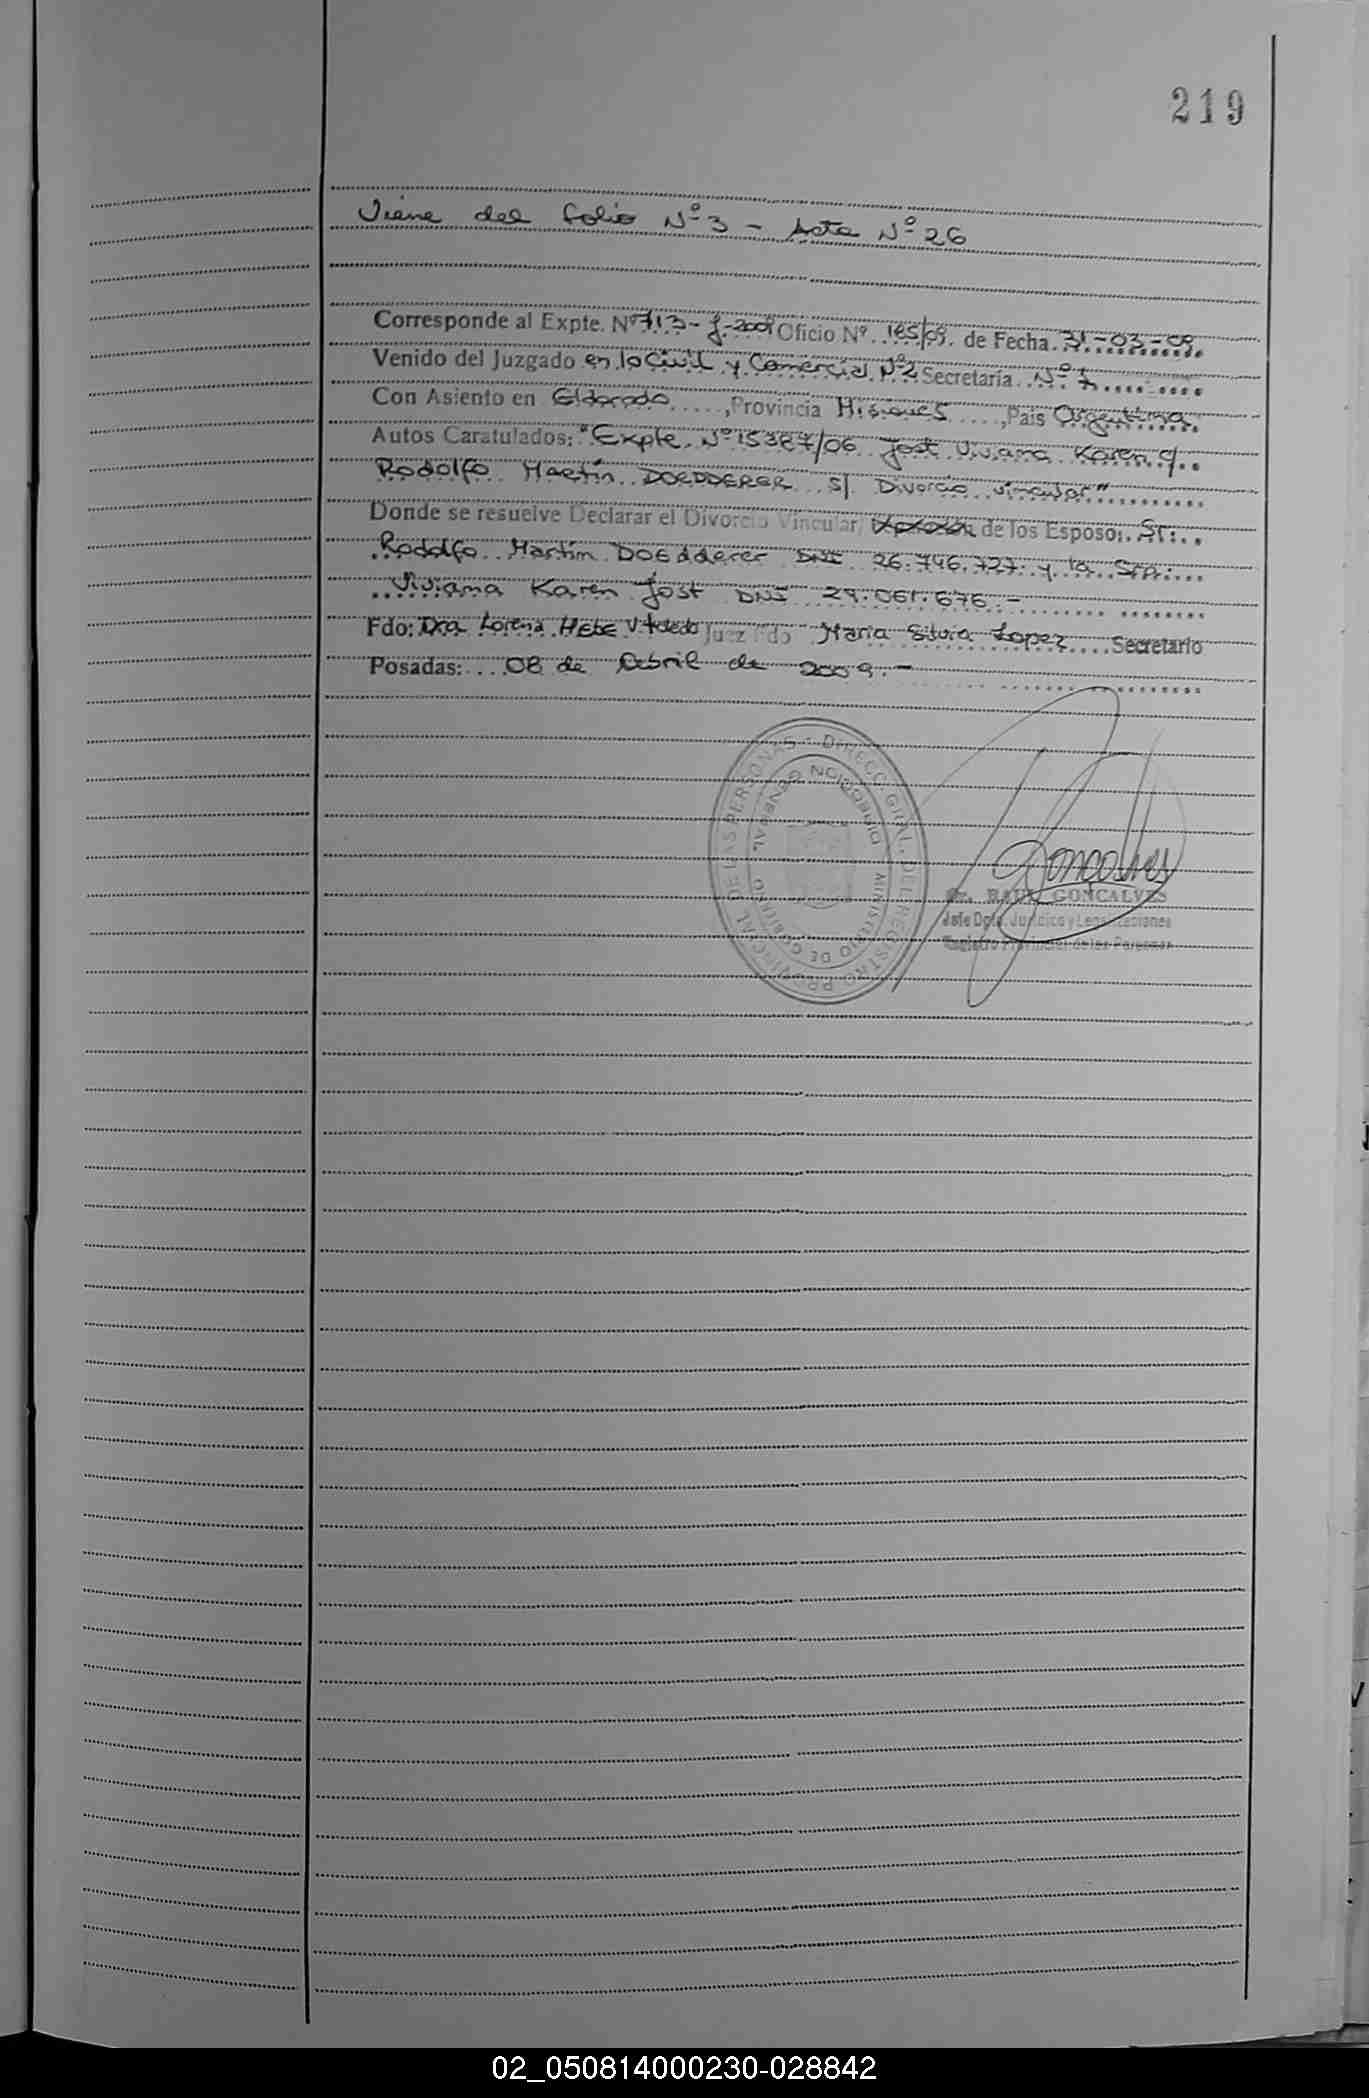 219
Viene del folio Nº 3 - Acta Nº 26
Corresponde al Expte. Nº 713-J-2009 Oficio Nº 185/09. de Fecha 31-03-09
Venido del Juzgado en lo Civil y Comercial Nº 2 Secretaría Nº
Con Asiento en Eldorado ....., Provincia Misiones ...., País Argentina
Autos Caratulados: "Expte. Nº 15387/06 Jost Viviana Karen c/
Rodolfo Martín DOEDDERER s/ Divorcio vincular"
Donde se resuelve Declarar el Divorcio Vincular, de los Esposo: Sr:
Rodolfo Martín DOEdderer DNI 26.746.727 y la Sra:
Viviana Karen Jost DNI 29.061.676 -
Fdo: Dra Lorena Hebe V. Toledo Juez Fdo Maria Silvia Lopez .... Secretario
Posadas: ... 08 de Abril de 2009.-
DIRECC. GRAL. DEL REGISTRO PROVINCIAL DE LAS PERSONAS
DIRECCION GENERAL
MINISTERIO DE GOBIERNO
Gonçalves
Dr. RAUL GONCALVES
Jefe Dpto. Jurídico y Legalizaciones
Registro Provincial de las Personas
02_050814000230-028842